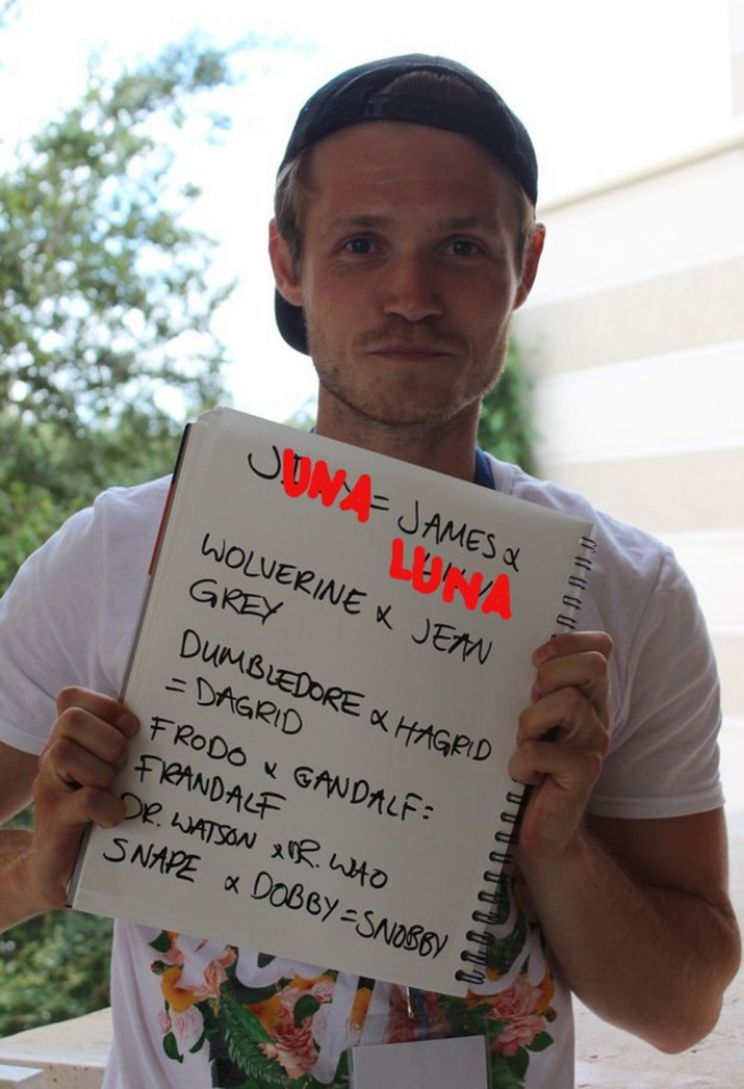 JUNA = JAMES &
LUNA
WOLVERINE & JEAN
GREY
DUMBLEDORE & HAGRID
= DAGRID
FRODO & GANDALF=
FRANDALF
DR. WATSON & DR. WAO
SNAPE & DOBBY = SNOBBY